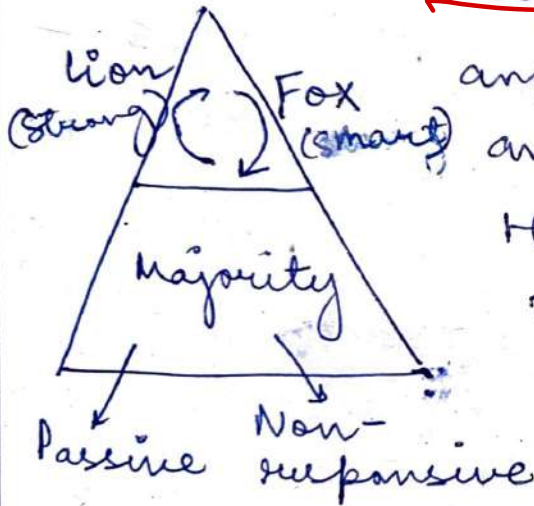 Lion
(strong)
Fox
(smart)
an
an
H
Majority
Passive
Non-
responsive